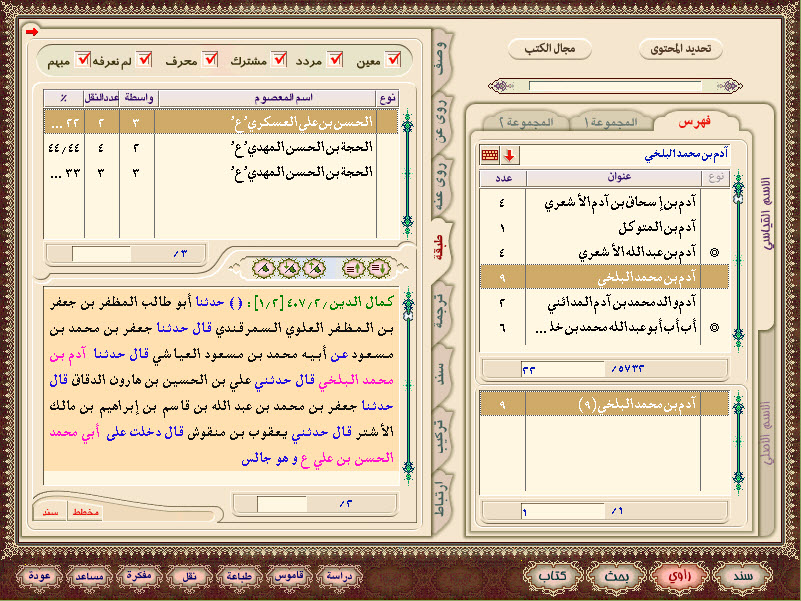 تحديد المحتوى
مجال الكتب
فهرس
المجموعة ١
المجموعة ٢
آدم بن محمد البلخي
نوع عنوان عدد
آدم بن إسحاق بن آدم الأشعري ٤
آدم بن المتوكل ١
آدم بن عبدالله الأشعري ٤
آدم بن محمد البلخي ٩
آدم والد محمد بن آدم المدائني ٢
أب أب أبو عبدالله محمد بن خلـ ... ٦
/٥٧٣٢ ٢٢
آدم بن محمد البلخي (٩) ٩
/١ ١
الاسم القياسي
الاسم الأصلي
معين
مردد
مشترك
محرف
لم نعرفه
مبهم
نوع اسم المعصوم واسطة عدد النقل ٪
الحسن بن علي العسكري ْ عْ ٣ ٢ ٢٢ ...
الحجة بن الحسن المهدي ْ عْ ٢ ٤ ٤٤/٤٤
الحجة بن الحسن المهدي ْ عْ ٣ ٣ ٣٣ ...
/٣
كمال الدين ٤٠٧/٢/ [١/٢] : ( ) حدثنا أبو طالب المظفر بن جعفر
بن المظفر العلوي السمرقندي قال حدثنا جعفر بن محمد بن
مسعود عن أبيه محمد بن مسعود العياشي قال حدثنا آدم بن
محمد البلخي قال حدثني علي بن الحسين بن هارون الدقاق قال
حدثنا جعفر بن محمد بن عبد الله بن قاسم بن إبراهيم بن مالك
الأشتر قال حدثني يعقوب بن منقوش قال دخلت على أبي محمد
الحسن بن علي ع و هو جالس
/٢
مخطط
سند
وصف
روى عن
روى عنه
طبقة
ترجمة
سند
تركيب
ارتباط
سند
راوي
بحث
كتاب
دراسة
قاموس
طباعة
نقل
مفكرة
مساعد
عودة